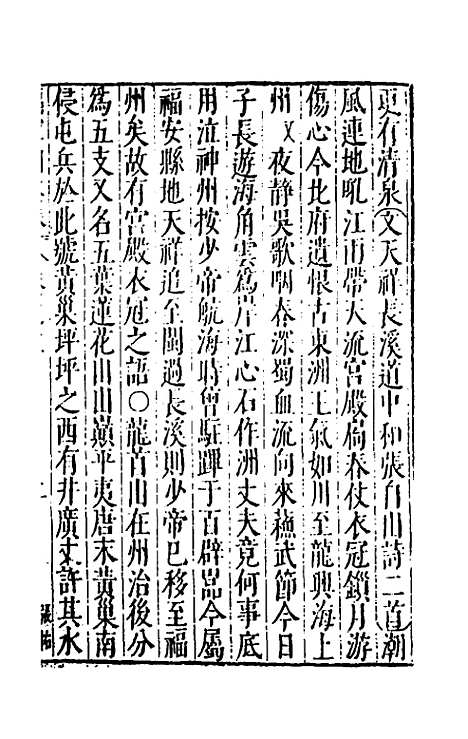 更有清泉文天祥長溪道中和張自山詩二首潮
風連地吼江雨帶天流宮殿扃春仗衣冠鎖月游
傷心今北府遺恨古東洲王氣如川至龍興海上
州又夜靜吳歌咽春深蜀血流向來蘇武節今日
子長遊海角雲為岸江心石作洲丈夫竟何事底
用泣神州按少帝航海時曾駐蹕于百辟嵒今屬
福安縣地天祥追至閩過長溪則少帝已移至福
州矣故有宮殿衣冠之語〇龍首山在州治後分
為五支又名五葉蓮花山山巔平夷唐末黃巢南
侵屯兵於此號黃巢坪坪之西有井廣丈許其水